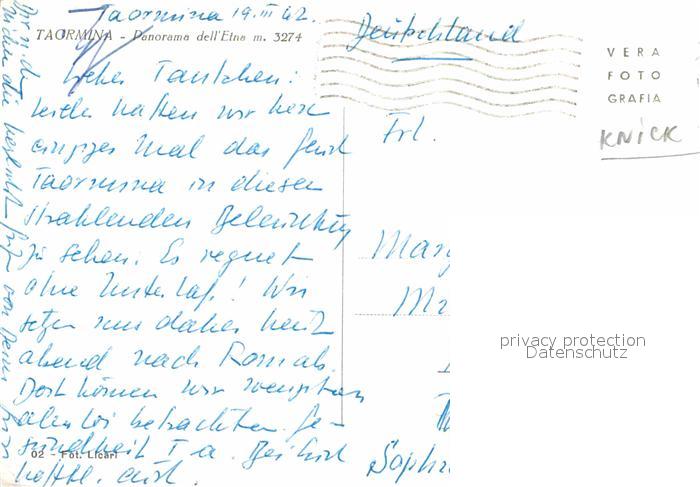 Taormina 19. III 62.
TAORMINA - Panorama dell'Etna m. 3274
Liebes Tantchen!
leider hatten wir kein
einziges Mal das Glück
Taormina in dieser
strahlenden Beleuchtung
zu sehen. Es regnet
ohne Unterlaß! Wir
setzen uns daher heut
abend nach Rom ab.
Dort können wir wenigstens
allerlei betrachten. Ge-
sundheit I a. Bei Euch
hofftl. auch.
02 - Fot. Licari
Deutschland
VERA
FOTO
GRAFIA
KNICK
Frl.
Mar
privacy protection
Datenschutz
Soph